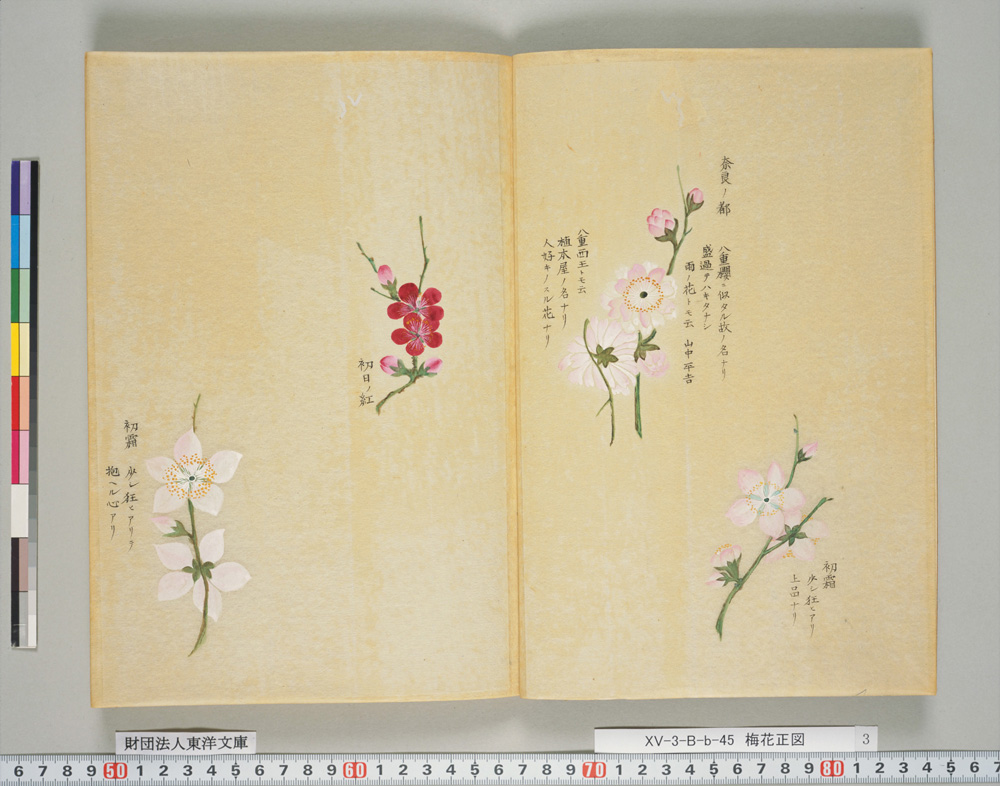 奈良ノ都
八重櫻ニ似タル故ノ名ナリ
盛過テハキタナシ
雨ノ花トモ云 山中平吉
八重西王トモ云
植木屋ノ名ナリ
人好キノスル花ナリ
初霜
少シ狂ヒアリ
上品ナリ
初日ノ紅
初霜
少シ狂ヒアリテ
抱ヘル心アリ
財団法人東洋文庫
XV-3-B-b-45 梅花正図 3
6 7 8 9 50 1 2 3 4 5 6 7 8 9 60 1 2 3 4 5 6 7 8 9 70 1 2 3 4 5 6 7 8 9 80 1 2 3 4 5 6 7